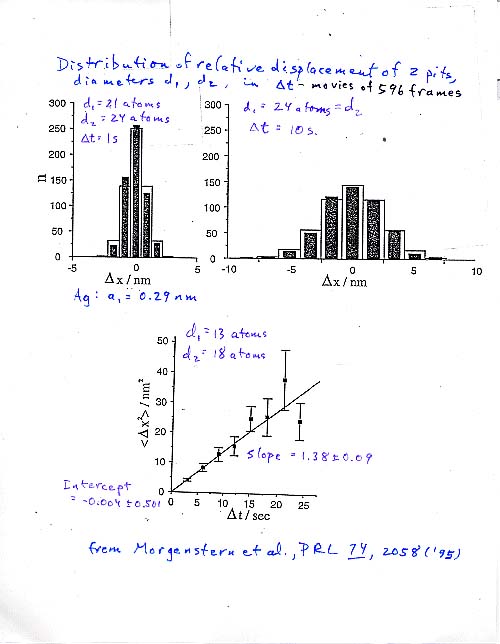 Distribution of relative displacement of 2 pits,
diameters d₁, d₂, in Δt - movies of 596 frames
300
250
200
150
100
50
0
n
d₁ = 21 atoms
d₂ = 24 atoms
Δt = 1s
-5 0 5
Δx / nm
300
250
200
150
100
50
0
d₁ = 24 atoms = d₂
Δt = 10s.
-10 -5 0 5 10
Δx / nm
Ag: a₁ = 0.29 nm
d₁ = 13 atoms
d₂ = 18 atoms
50
40
30
20
10
0
<Δx²> / nm²
Slope = 1.38 ± 0.09
Intercept
= -0.004 ± 0.501
0 5 10 15 20 25
Δt / sec
from Morgenstern et al., PRL 74, 2058 ('95)